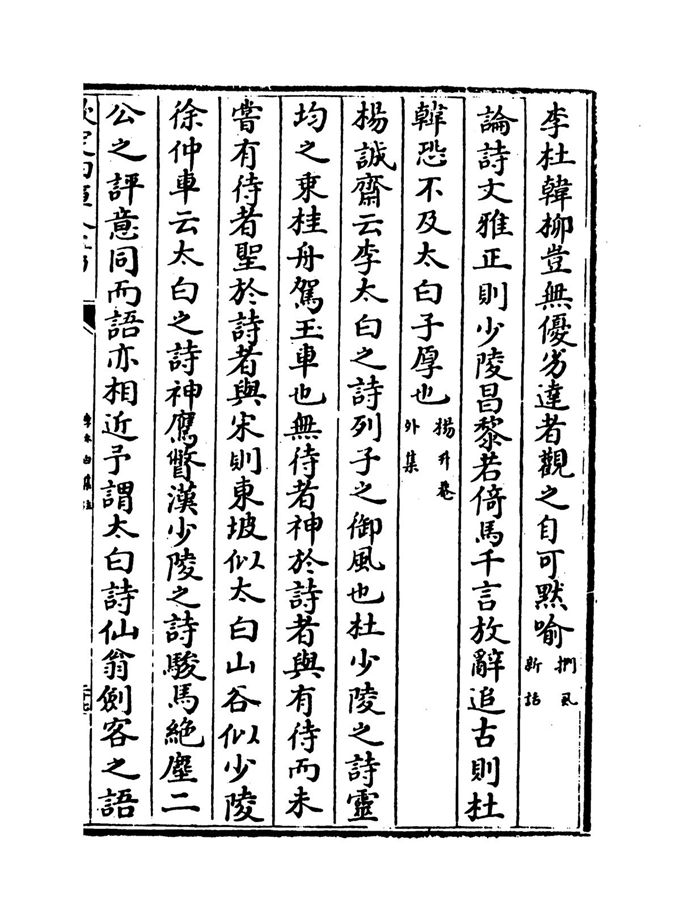 李杜韓柳豈無優劣達者觀之自可默喻捫虱新話
論詩文雅正則少陵昌黎若倚馬千言放辭追古則杜
韓恐不及太白子厚也楊升菴外集
楊誠齋云李太白之詩列子之御風也杜少陵之詩靈
均之乗桂舟駕玉車也無待者神於詩者與有待而未
嘗有待者聖於詩者與宋則東坡似太白山谷似少陵
徐仲車云太白之詩神鷹瞥漢少陵之詩駿馬絶塵二
公之評意同而語亦相近予謂太白詩仙翁劍客之語
李太白集注